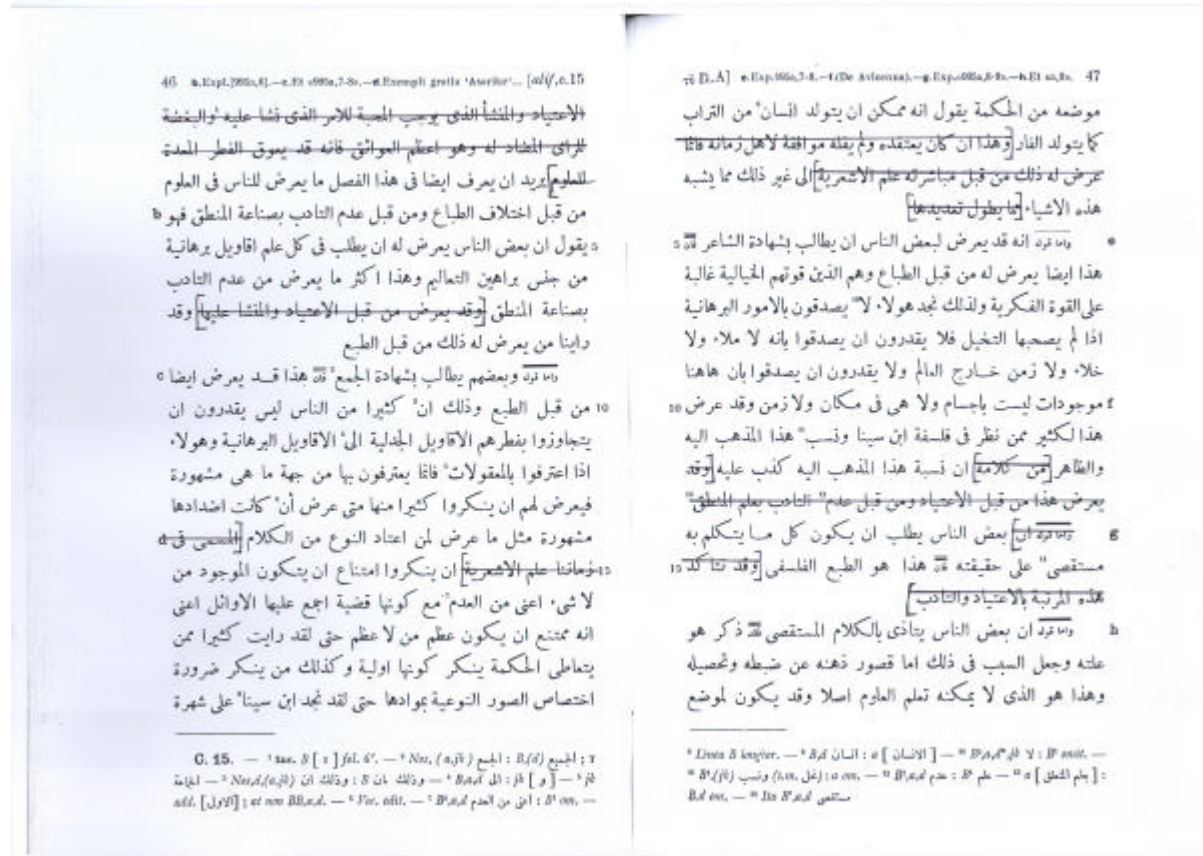 46 a.Expl.[995a,6].—c.Et «995a,7-8».—d.Exempli gratia 'Asarite'... [alif,c.15
الاعتياد والمنشأ الذى يوجب المحبة للامر الذى نشا عليه والبغضة
للراى المضاد له وهو اعظم العوائق فانه قد يعوق الفطر المعدة
للعلوم] يريد ان يعرف ايضا فى هذا الفصل ما يعرض للناس فى العلوم
من قبل اختلاف الطباع ومن قبل عدم التادب بصناعة المنطق فهو b
5 يقول ان بعض الناس يعرض له ان يطلب فى كل علم اقاويل برهانية
من جنس براهين التعاليم وهذا اكثر ما يعرض من عدم التادب
بصناعة المنطق [وقد يعرض من قبل الاعتياد والمنشا عليها] وقد
راينا من يعرض له ذلك من قبل الطبع
واما قوله وبعضهم يطالب بشهادة الجمع فان هذا قد يعرض ايضا c
10 من قبل الطبع وذلك ان كثيرا من الناس ليس يقدرون ان
يتجاوزوا بفطرهم الاقاويل الجدلية الى الاقاويل البرهانية وهولاء
اذا اعترفوا بالمعقولات فانما يعترفون بها من جهة ما هى مشهورة
فيعرض لهم ان ينكروا كثيرا منها متى عرض أن كانت اضدادها
مشهورة مثل ما عرض لمن اعتاد النوع من الكلام [المسمى فى d
15 زماننا علم الاشعرية] ان ينكروا امتناع ان يتكون الموجود من
لا شىء اعنى من العدم مع كونها قضية اجمع عليها الاوائل اعنى
انه ممتنع ان يكون عظم من لا عظم حتى لقد رايت كثيرا ممن
يتعاطى الحكمة ينكر كونها اولية وكذلك من ينكر ضرورة
اختصاص الصور النوعية بموادها حتى لقد نجد ابن سينا على شهرة
C. 15. — [1] fol. 6
add. [الاول] ; at non BB,a,d. — Voc. edit. — أعنى من العدم : om. —
[1.A] e.Exp.995a,7-8.—f.(De Avicenna).—g.Exp.«995a,8-9».—h.Et «a,9». 47
موضعه من الحكمة يقول انه ممكن ان يتولد انسان من التراب
كما يتولد الفار [وهذا ان كان يعتقده ولم يقله موافقة لاهل زمانه فانما
عرض له ذلك من قبل مباشرته علم الاشعرية] الى غير ذلك مما يشبه
هذه الاشياء [مما يطول تعديدها]
e واما قوله انه قد يعرض لبعض الناس ان يطالب بشهادة الشاعر فان 5
هذا ايضا يعرض له من قبل الطباع وهم الذين قوتهم الخيالية غالبة
على القوة الفكرية ولذلك نجد هولاء لا يصدقون بالامور البرهانية
اذا لم يصحبها التخيل فلا يقدرون ان يصدقوا بانه لا ملاء ولا
خلاء ولا زمن خارج العالم ولا يقدرون ان يصدقوا بان هاهنا
f موجودات ليست باجسام ولا هى فى مكان ولا زمن وقد عرض 10
هذا لكثير ممن نظر فى فلسفة ابن سينا ونسب هذا المذهب اليه
والظاهر [من كلامه] ان نسبة هذا المذهب اليه كذب عليه [وقد
يعرض هذا من قبل الاعتياد ومن قبل عدم التادب بعلم المنطق
g واما قوله ان] بعض الناس يطلب ان يكون كل ما يتكلم به
مستقصى على حقيقته فان هذا هو الطبع الفلسفى [وقد تتا كد 15
هذه المرتبة بالاعتياد والتادب]
h واما قوله ان بعض الناس يتاذى بالكلام المستقصى فان ذكر هو
علته وجعل السبب فى ذلك اما قصور ذهنه عن ضبطه وتحصيله
وهذا هو الذى لا يمكنه تعلم العلوم اصلا وقد يكون لموضع
Linea B longior. — B,d انسان : a [الانسان] — لا : omit. —
B,d om. — Ita مستقصى